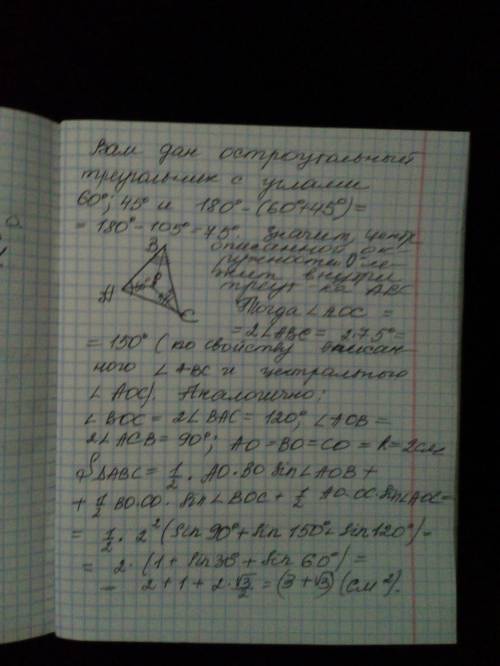 Вам дан остроугольный
треугольник с углами
60°; 45° и 180° - (60°+45°) =
= 180° - 105° = 75°. Значит, центр
описанной ок-
ружности O ле-
жит внутри
треуг-ка ABC
B
A
C
Тогда ∠AOC =
= 2∠ABC = 2·75° =
= 150° (по свойству вписан-
ного ∠ABC и центрального
∠AOC). Аналогично:
∠BOC = 2∠BAC = 120°, ∠AOB =
2∠ACB = 90°; AO=BO=CO=R=2см
S△ABC = 1/2 · AO·BO sin∠AOB +
+ 1/2 BO·OC · sin∠BOC + 1/2 AO·OC·sin∠AOC =
= 1/2 · 2² (sin 90° + sin 150° + sin 120°) =
= 2 · (1 + sin 30° + sin 60°) =
= 2 + 1 + 2·√3/2 = (3 + √3) (см²).